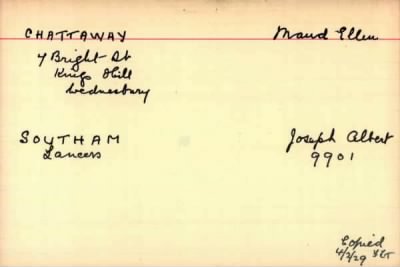 CHATTAWAY Maud Ellen
7 Bright St
Kings Hill
Wednesbury
SOUTHAM Joseph Albert
Lancers 9901
Copied
4/2/29